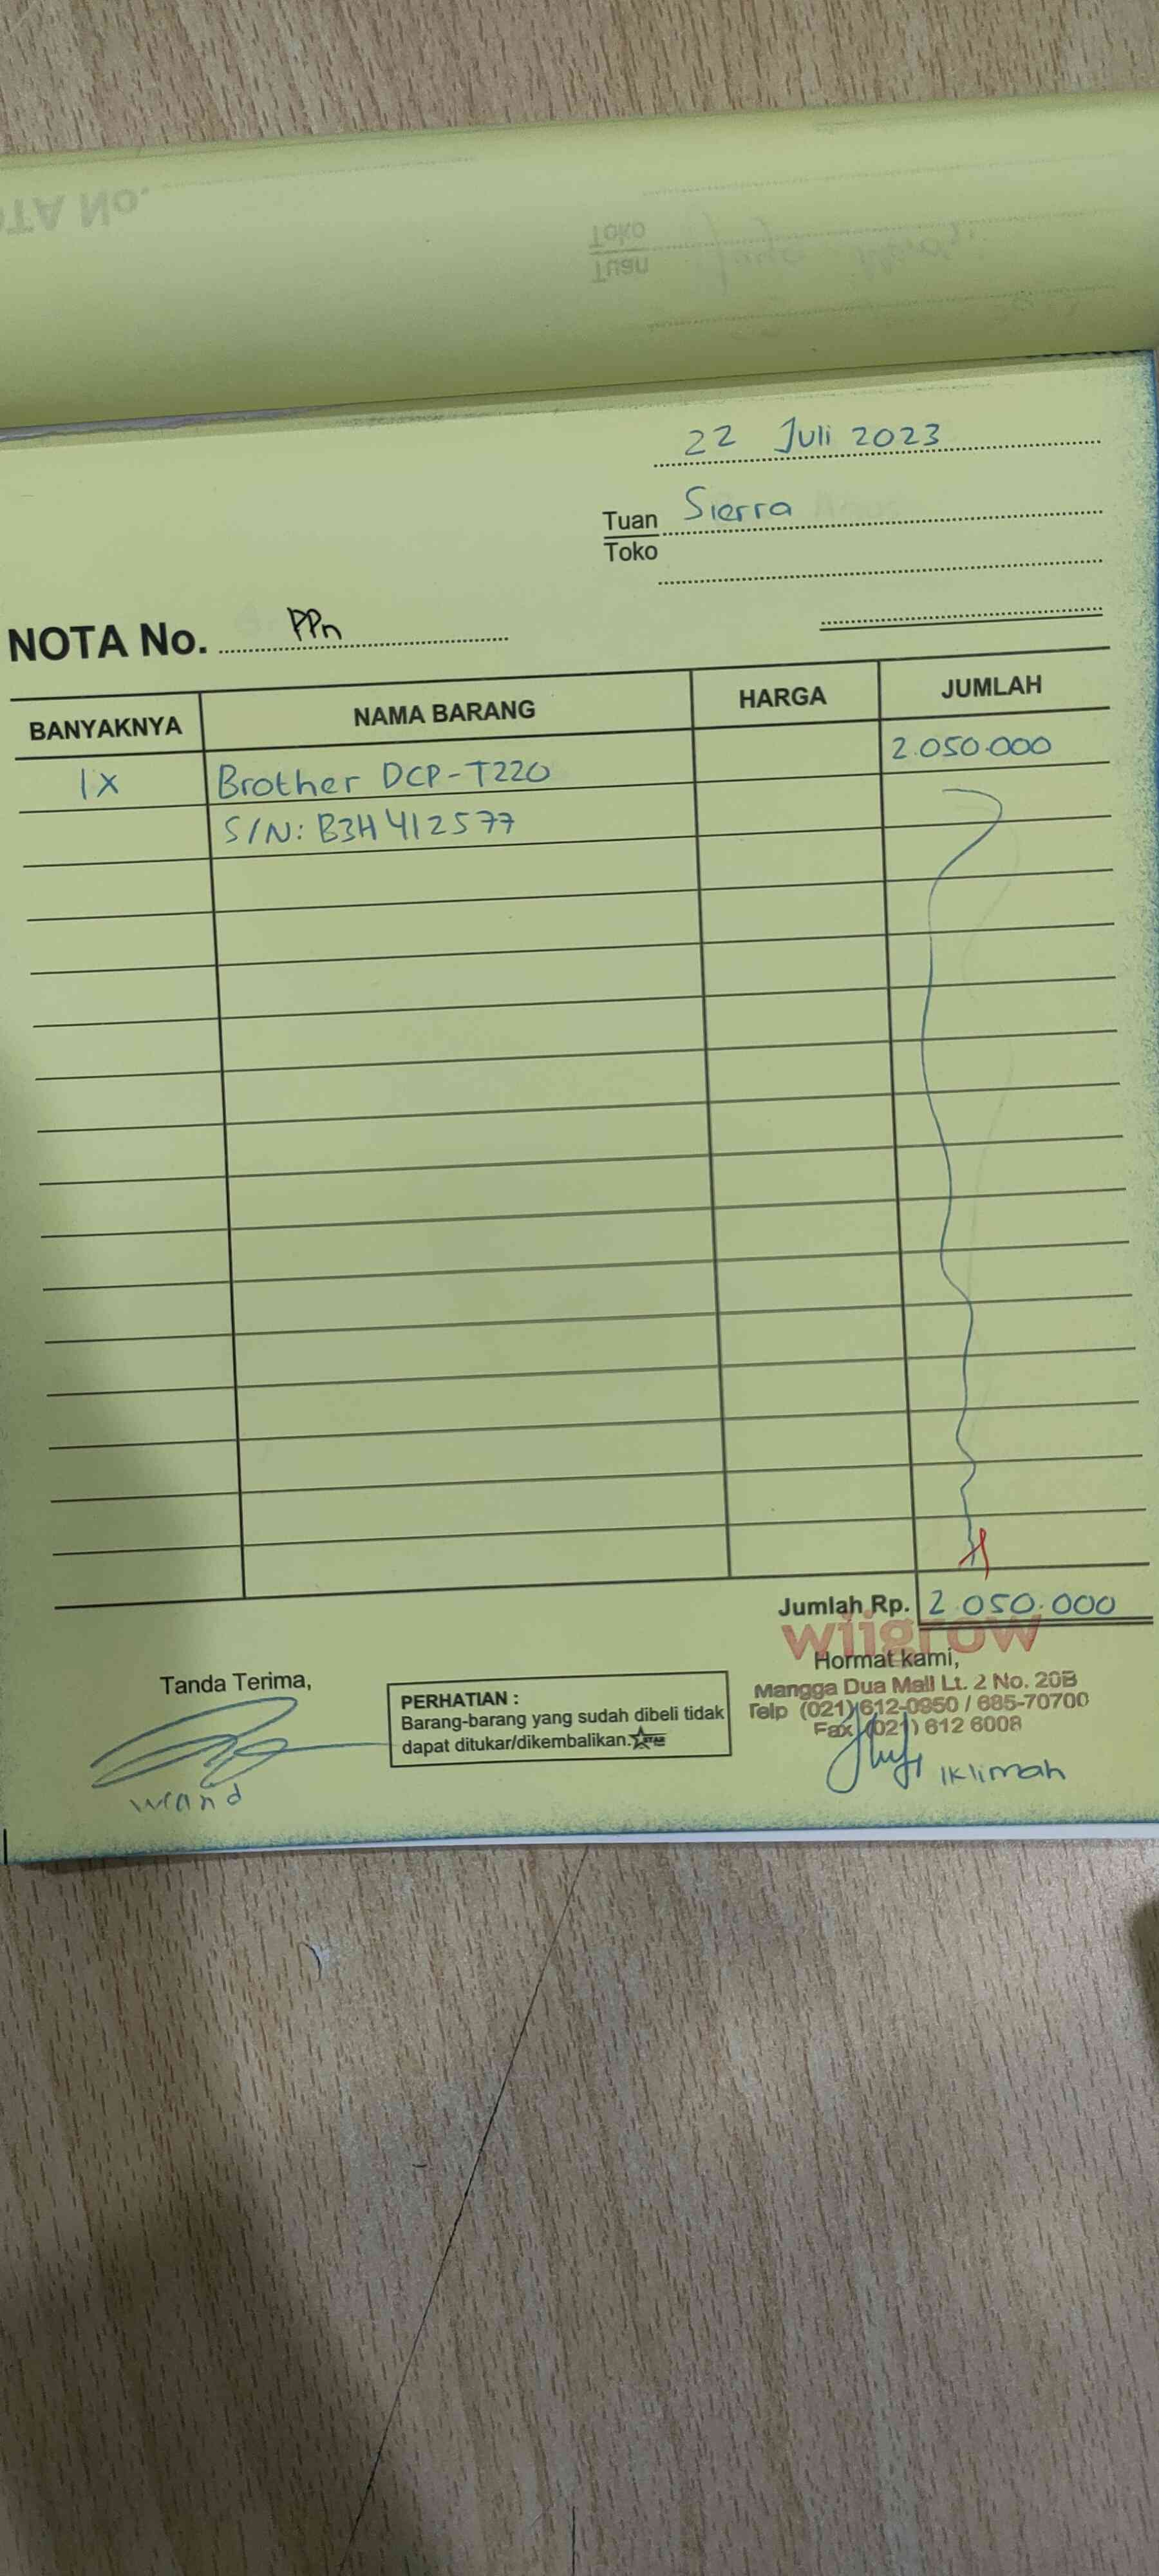 NOTA No.
Toko
Tuan
22 Juli 2023
Tuan Sierra
Toko
NOTA No. PPn
BANYAKNYA NAMA BARANG HARGA JUMLAH
1x Brother DCP-T220 2.050.000
S/N: B3H412577
Jumlah Rp. 2.050.000
wiigrow
Tanda Terima, Hormat kami,
PERHATIAN :
Barang-barang yang sudah dibeli tidak
dapat ditukar/dikembalikan.
Mangga Dua Mall Lt. 2 No. 20B
Telp (021) 612-0950 / 685-70700
Fax (021) 612 6008
Iklimah